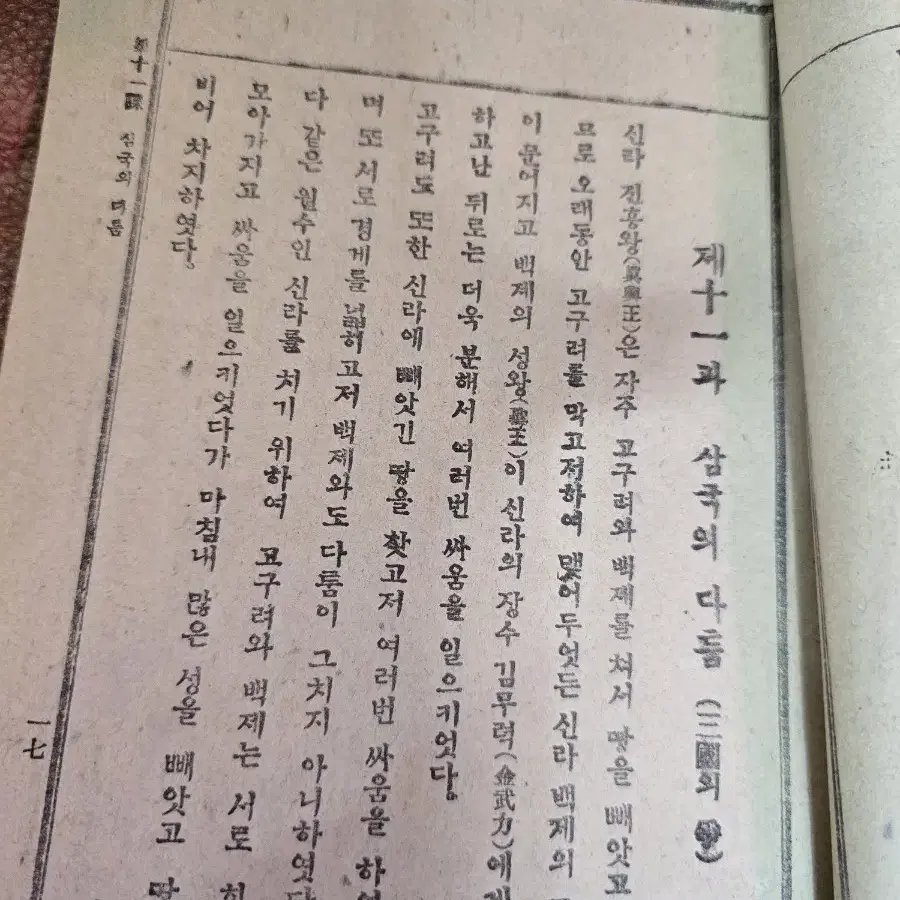 제十一과 삼국의 다툼 (三國의 爭)
신라 진흥왕(眞興王)은 자주 고구려와 백제를 처서 땅을 빼앗고
므로 오래동안 고구려를 막고저하여 맺어두엇든 신라 백제의
이 문어지고 백제의 성왕(聖王)이 신라의 장수 김무력(金武力)에게
하고난 뒤로는 더욱 분해서 여러번 싸움을 일으키엇다.
고구려도 또한 신라에 빼앗긴 땅을 찾고저 여러번 싸움을 하
며 또 서로 경게를 넓히고저 백제와도 다툼이 그치지 아니하엿다
다 같은 원수인 신라를 치기 위하여 고구려와 백제는 서로 히
모아가지고 싸움을 일으키엇다가 마침내 많은 성을 빼앗고 땅
비어 차지하엿다.
第十一課 삼국의 다툼
一七